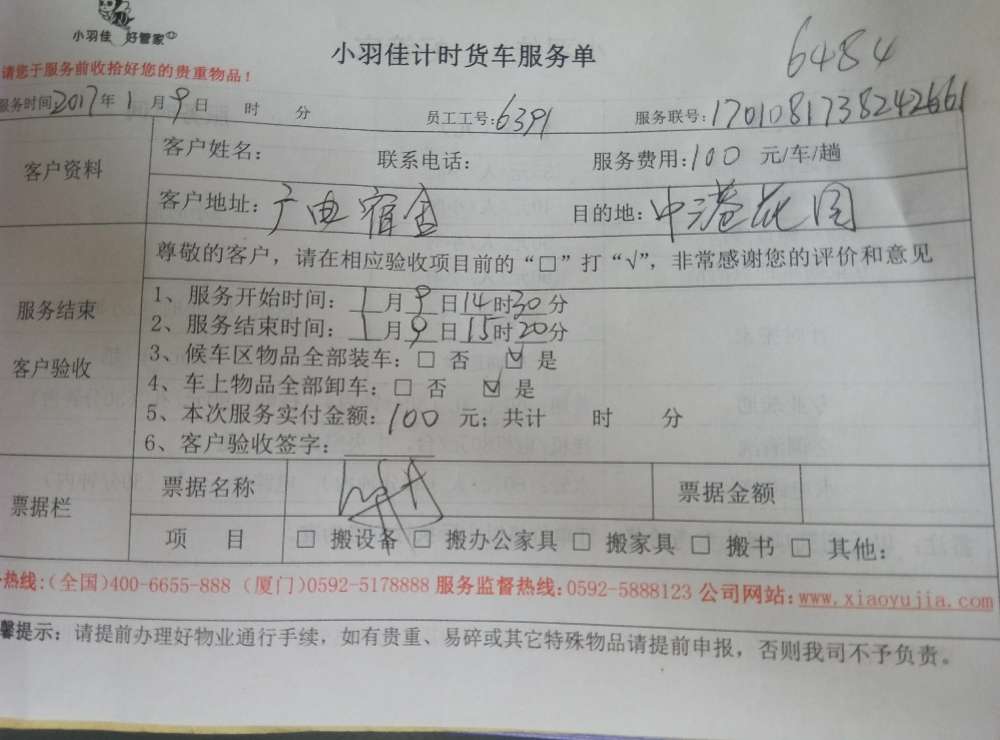 小羽佳 好管家
小羽佳计时货车服务单
6484
请您于服务前收拾好您的贵重物品！
服务时间2017年1月9日 时 分 员工工号:6391 服务联号:1701081738242661
客户资料
客户姓名: 联系电话: 服务费用:100 元/车/趟
客户地址:广电宿舍 目的地:中港花园
尊敬的客户，请在相应验收项目前的“□”打“√”，非常感谢您的评价和意见
服务结束
客户验收
1、服务开始时间: 1月9日14时30分
2、服务结束时间: 1月9日15时20分
3、候车区物品全部装车:□ 否 ☑ 是
4、车上物品全部卸车:□ 否 ☑ 是
5、本次服务实付金额:100 元；共计 时 分
6、客户验收签字:
票据栏
票据名称 票据金额
项 目 □ 搬设备 □ 搬办公家具 □ 搬家具 □ 搬书 □ 其他:
热线:(全国)400-6655-888 (厦门)0592-5178888 服务监督热线:0592-5888123 公司网站:www.xiaoyujia.com
馨提示: 请提前办理好物业通行手续，如有贵重、易碎或其它特殊物品请提前申报，否则我司不予负责。